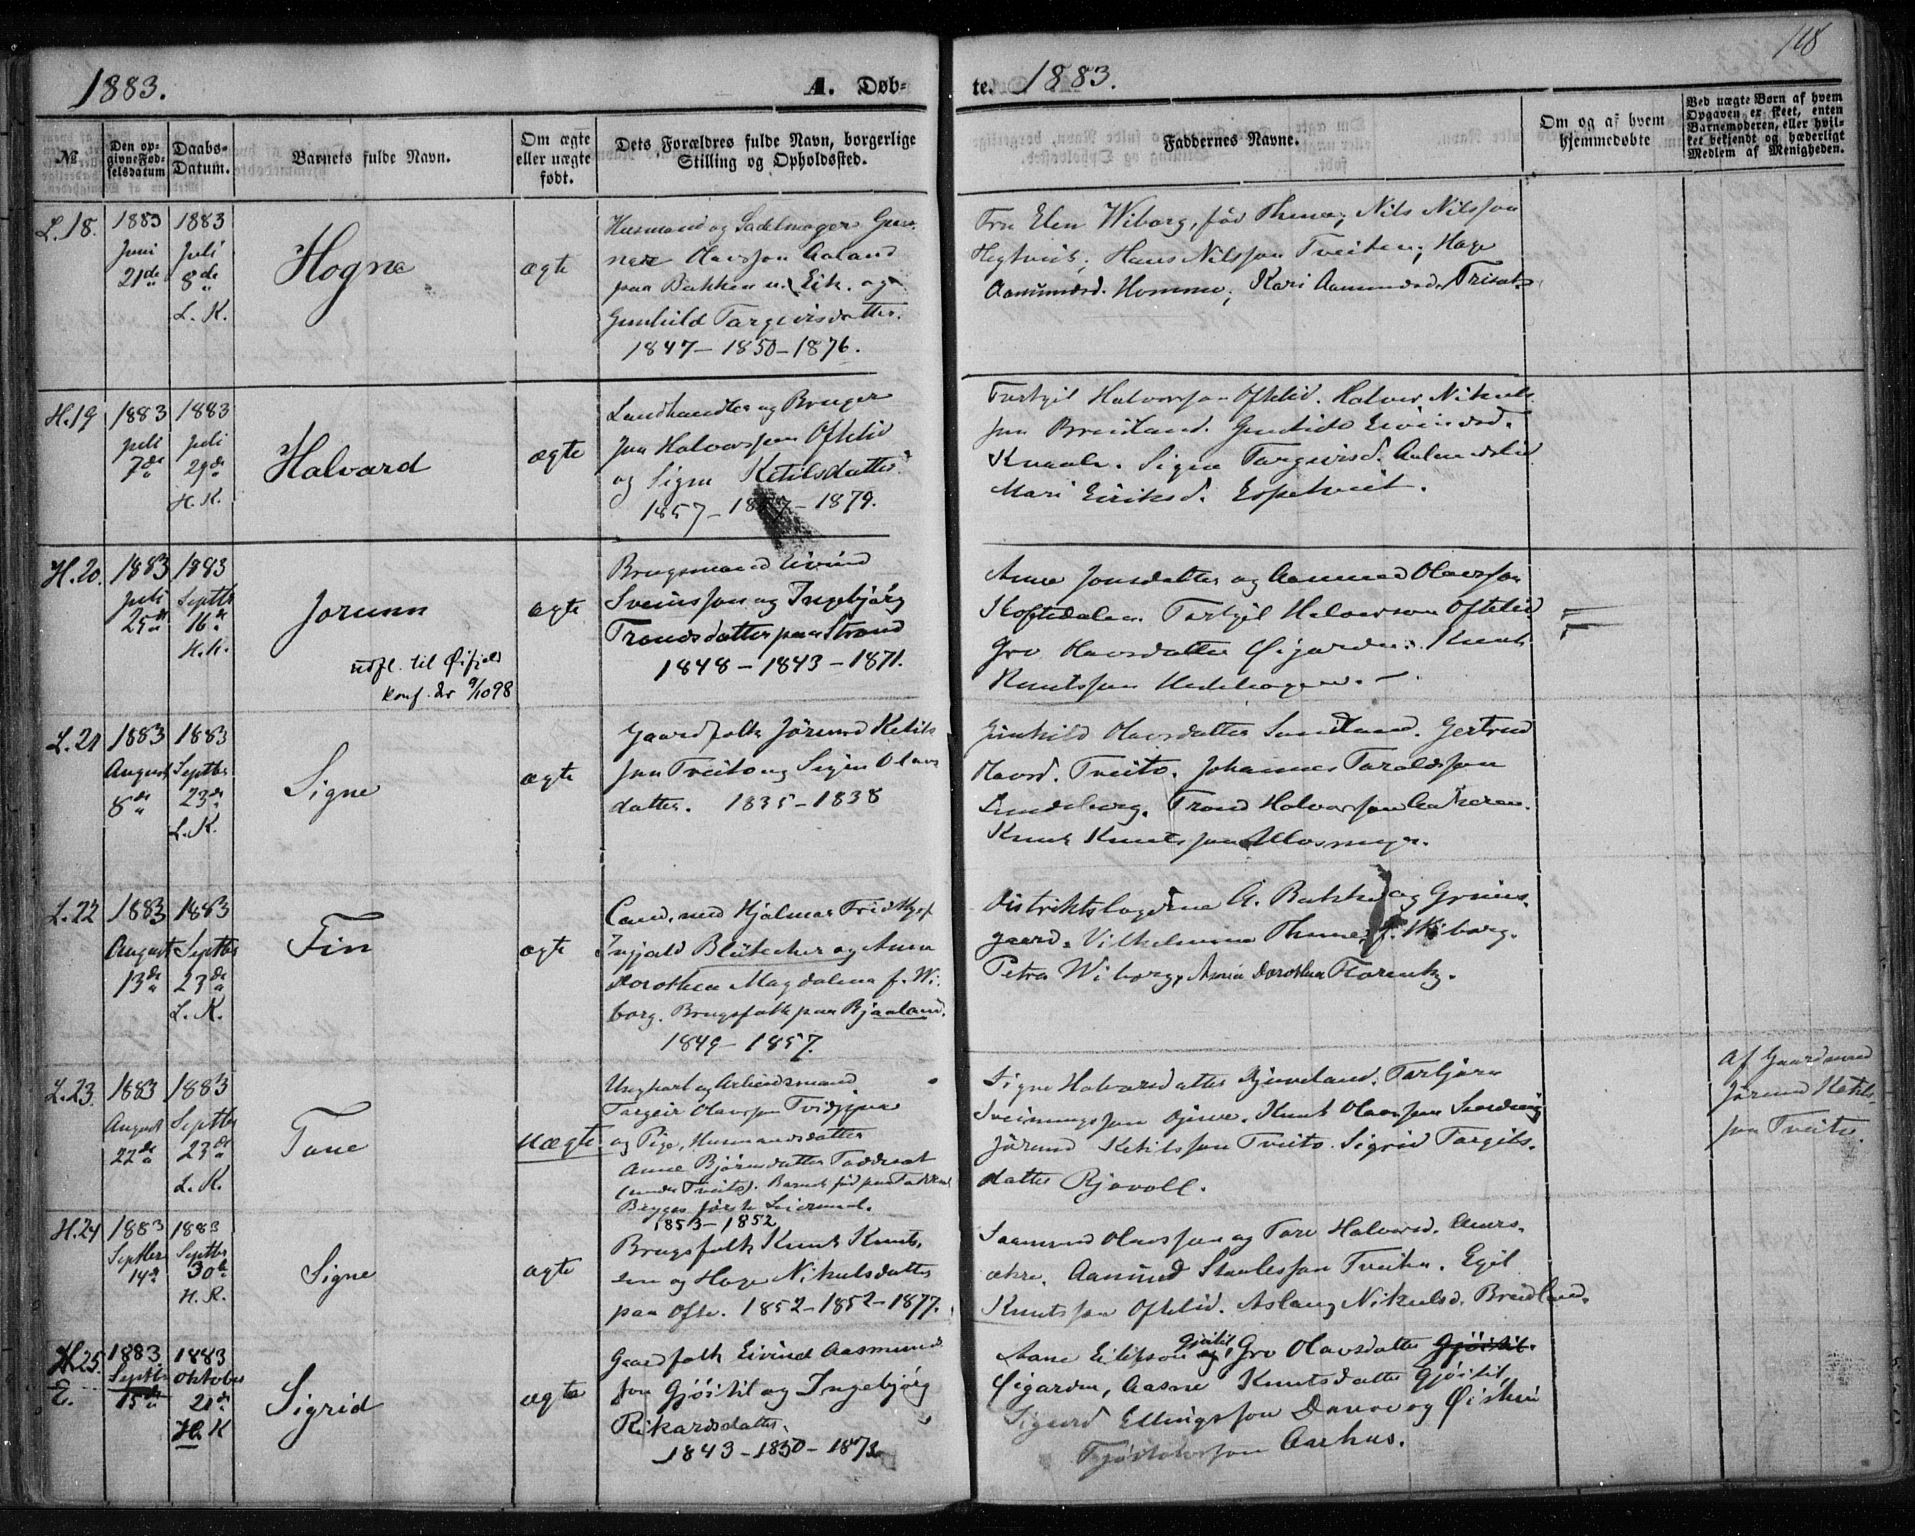 118
1883.
A. Døb-
te. 1883.
No.
Den op-
givne Fød-
selsdatum
Daabs-
Datum.
Barnets fulde Navn.
Om ægte
eller uægte
født.
Dets Forældres fulde Navn, borgerlige
Stilling og Opholdssted.
Faddernes Navne.
Om og af hvem
hjemmedøbte
Ved uægte Børn af hvem
Opgaven er skeet, enten
Barnemoderen, eller hvil-
ket bekjendt og hæderligt
Medlem af Menigheden.
L. 18.
1883
Juni
21de
1883
juli
8de
L. K.
Hogne
ægte
Husmand og Sadelmager Gun-
nar Olavsson Aaland
paa Bakken u. Eik. og
Gunhild Targeirsdatter.
1847 - 1850 - 1876.
Fru Elen Wiborg, fød Thune, Nils Nilsson
Hegtveit, Hans Nilsson Tveiten, Hage
Aamundsd. Homme, Kari Aamundsd.
H. 19
1883
juli
7de
1883
juli
29de
H. K.
Halvard
ægte
Landhandler og Bruger
Jon Halvorsson Oftelid
og Signe Ketilsdatter
1857 - - 1879.
Tarkjil Halvorsson Oftelid. Halvor Nikuls
son Breiland. Gunhild Eivindsd.
Signe Targeirsd.
Mari Eiriksd. Espetveit.
H. 20.
1883
juli
25de
1883
Septbr
16de
H. K.
Jorunn
udfl. til Øifjeld
konf. der 9/10 98
ægte
Brugsmand Eivind
Sveinsson og Ingebjørg
Trondsdatter paa Strand
1848 - 1843 - 1871.
Anne Jonsdatter og Aamund Olavsson
Tarkjil Halvorson Oftelid
Gro Olavsdatter Øigarden. Knut
Knutsson
L. 21
1883
August
8de
1883
Septbr
23de
L. K.
Signe
ægte
Gaardfolk Jørund Ketils
son Tveito og Signe Olavs
datter. 1835 - 1838
Gunhild Olavsdatter Gertrud
Olavsd. Tveito. Johannes Taraldsson
Trond Halvorsson
Knut Knutsson
L. 22
1883
August
13de
1883
Septbr
23de
L. K.
Fin
ægte
Cand. med Hjalmar Fridtjof
Ingjald Blütecher og Anna
Dorothea Magdalena f. Wi-
borg. Brugsfolk paa Bjaaland.
1849 - 1857.
Distriktslægerne A. Bakke og Grøns-
gaard. Vilhelmine Thune, f. Wiborg.
Petra Wiborg, Anna Dorothea
L. 23.
1883
August
22de
1883
Septbr
23de
L. K.
Tone
uægte
Ungkarl og Arbeidsmand
Targeir Olavsson
og Pige, Husmandsdatter
Anne Bjørnsdatter
(under Tveito). Barnet fød paa
Begges første Leiermaal.
1853 - 1852
Signe Halvorsdatter Tarbjørn
Sveinungsson Knut Olavsson
Jørund Ketilsson Tveito. Sigrid Targils-
datter Rjavoll.
Af Gaardmand
Jørund Ketils-
son Tveito.
H. 24
1883
Septbr
14de
1883
Septbr
30te
H. K.
Signe
ægte
Brugsfolk Knut Knut-
sen og Hage Nikulsdatter
paa Ofte. 1852 - 1852 - 1877.
Saamund Olavsson og Tore Halvorsd.
Aamund Staalesson Tveiten. Egil
Knutsson Oftelid. Aslaug Nikulsd. Breidland.
H. 25.
E.
1883
Septbr
15de
1883
Oktober
21de
H. K
Sigrid
ægte
Gaardfolk Eivind Aasmund
son Gjøitil og Ingebjørg
Rikardsdatter.
1843 - 1850 - 1872
Aane Eilifson Gjøitil, Gro Olavsdatter Gjøitil.
Øigarden, Aasne Knutsdatter Gjøitil,
Sigurd Ellingsson og Øistein
Tjøstolvsson Aarhus.